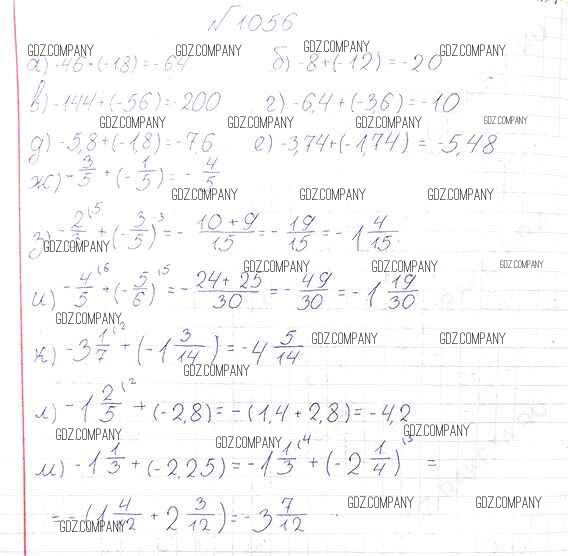 №1056
а) -46+(-18)=-64 б) -8+(-12)=-20
в) -144+(-56)=-200 г) -6,4+(-3,6)=-10
д) -5,8+(-1,8)=-7,6 е) -3,74+(-1,74) = -5,48
ж) -3/5 + (-1/5) = -4/5
з) -2/3 (5 + (-3/5) (3 = - (10+9)/15 = -19/15 = -1 4/15
и) -4/5 (6 + (-5/6) (5 = - (24+25)/30 = -49/30 = -1 19/30
к) -3 1/7 (2 + (-1 3/14) = -4 5/14
л) -1 2/5 (2 + (-2,8) = -(1,4+2,8) = -4,2
м) -1 1/3 + (-2,25) = -1 1/3 (4 + (-2 1/4) (3 =
= -(1 4/12 + 2 3/12) = -3 7/12
GDZ.COMPANY GDZ.COMPANY GDZ.COMPANY GDZ.COMPANY
GDZ.COMPANY GDZ.COMPANY GDZ.COMPANY GDZ.COMPANY
GDZ.COMPANY GDZ.COMPANY GDZ.COMPANY
GDZ.COMPANY GDZ.COMPANY GDZ.COMPANY GDZ.COMPANY
GDZ.COMPANY GDZ.COMPANY GDZ.COMPANY
GDZ.COMPANY
GDZ.COMPANY GDZ.COMPANY GDZ.COMPANY
GDZ.COMPANY GDZ.COMPANY GDZ.COMPANY